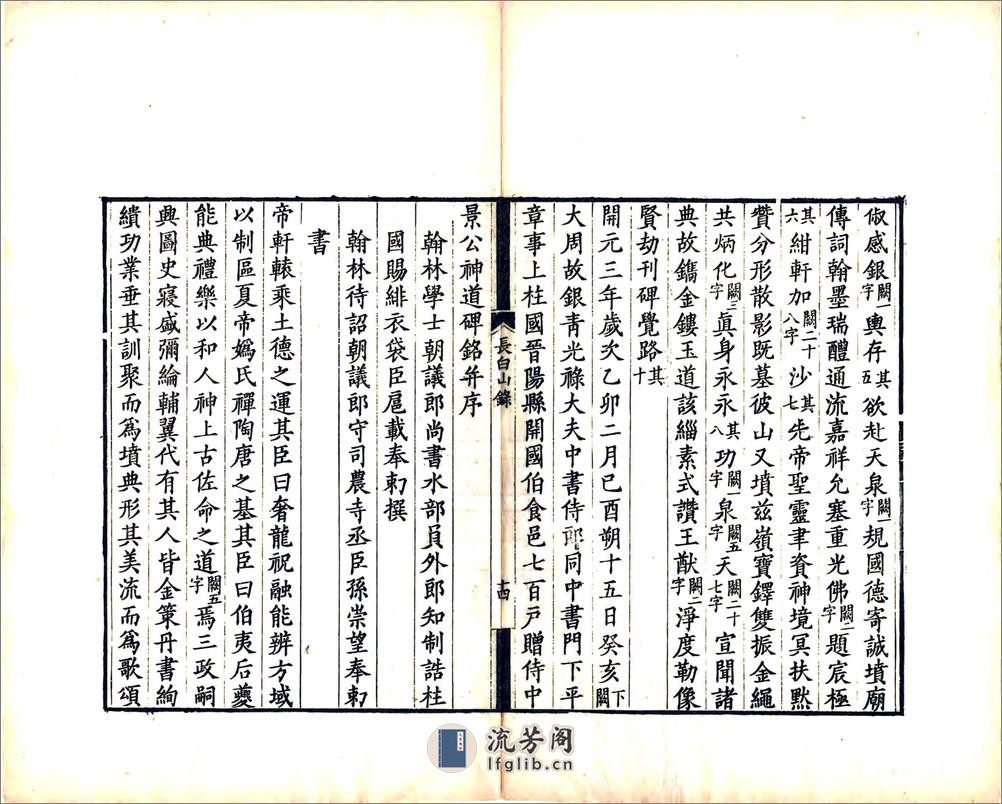 俶感銀闕一字輿存其五欲赴天泉闕一字規國德寄誠墳廟
傳詞翰墨瑞醴通流嘉祥允塞重光佛闕二字題宸極
其六紺軒加闕二十八字沙其七先帝聖靈聿資神境冥扶黙
贊分形散影既墓彼山又墳兹嶺寶鐸雙振金繩
共炳化闕三字眞身永永其八功闕一字泉闕五字天闕二十七字宣聞諸
典故鐫金鏤玉道該緇素式讚王猷闕二字淨度勒像
賢劫刊碑覺路其十
開元三年歲次乙卯二月己酉朔十五日癸亥下闕
大周故銀青光祿大夫中書侍郎同中書門下平
章事上柱國晉陽縣開國伯食邑七百戸贈侍中
長白山錄
十四
景公神道碑銘并序
翰林學士朝議郎尚書水部員外郎知制誥柱
國賜緋衣袋臣扈載奉勑撰
翰林待詔朝議郎守司農寺丞臣孫崇望奉勑
書
帝軒轅乘土德之運其臣曰奢龍祝融能辨方域
以制區夏帝媯氏禪陶唐之基其臣曰伯夷后夔
能典禮樂以和人神上古佐命之道闕五字焉三政嗣
興圖史寖盛彌綸輔翼代有其人皆金策丹書絢
績功業垂其訓聚而爲墳典形其美流而爲歌頌
流芳阁
lfglib.cn